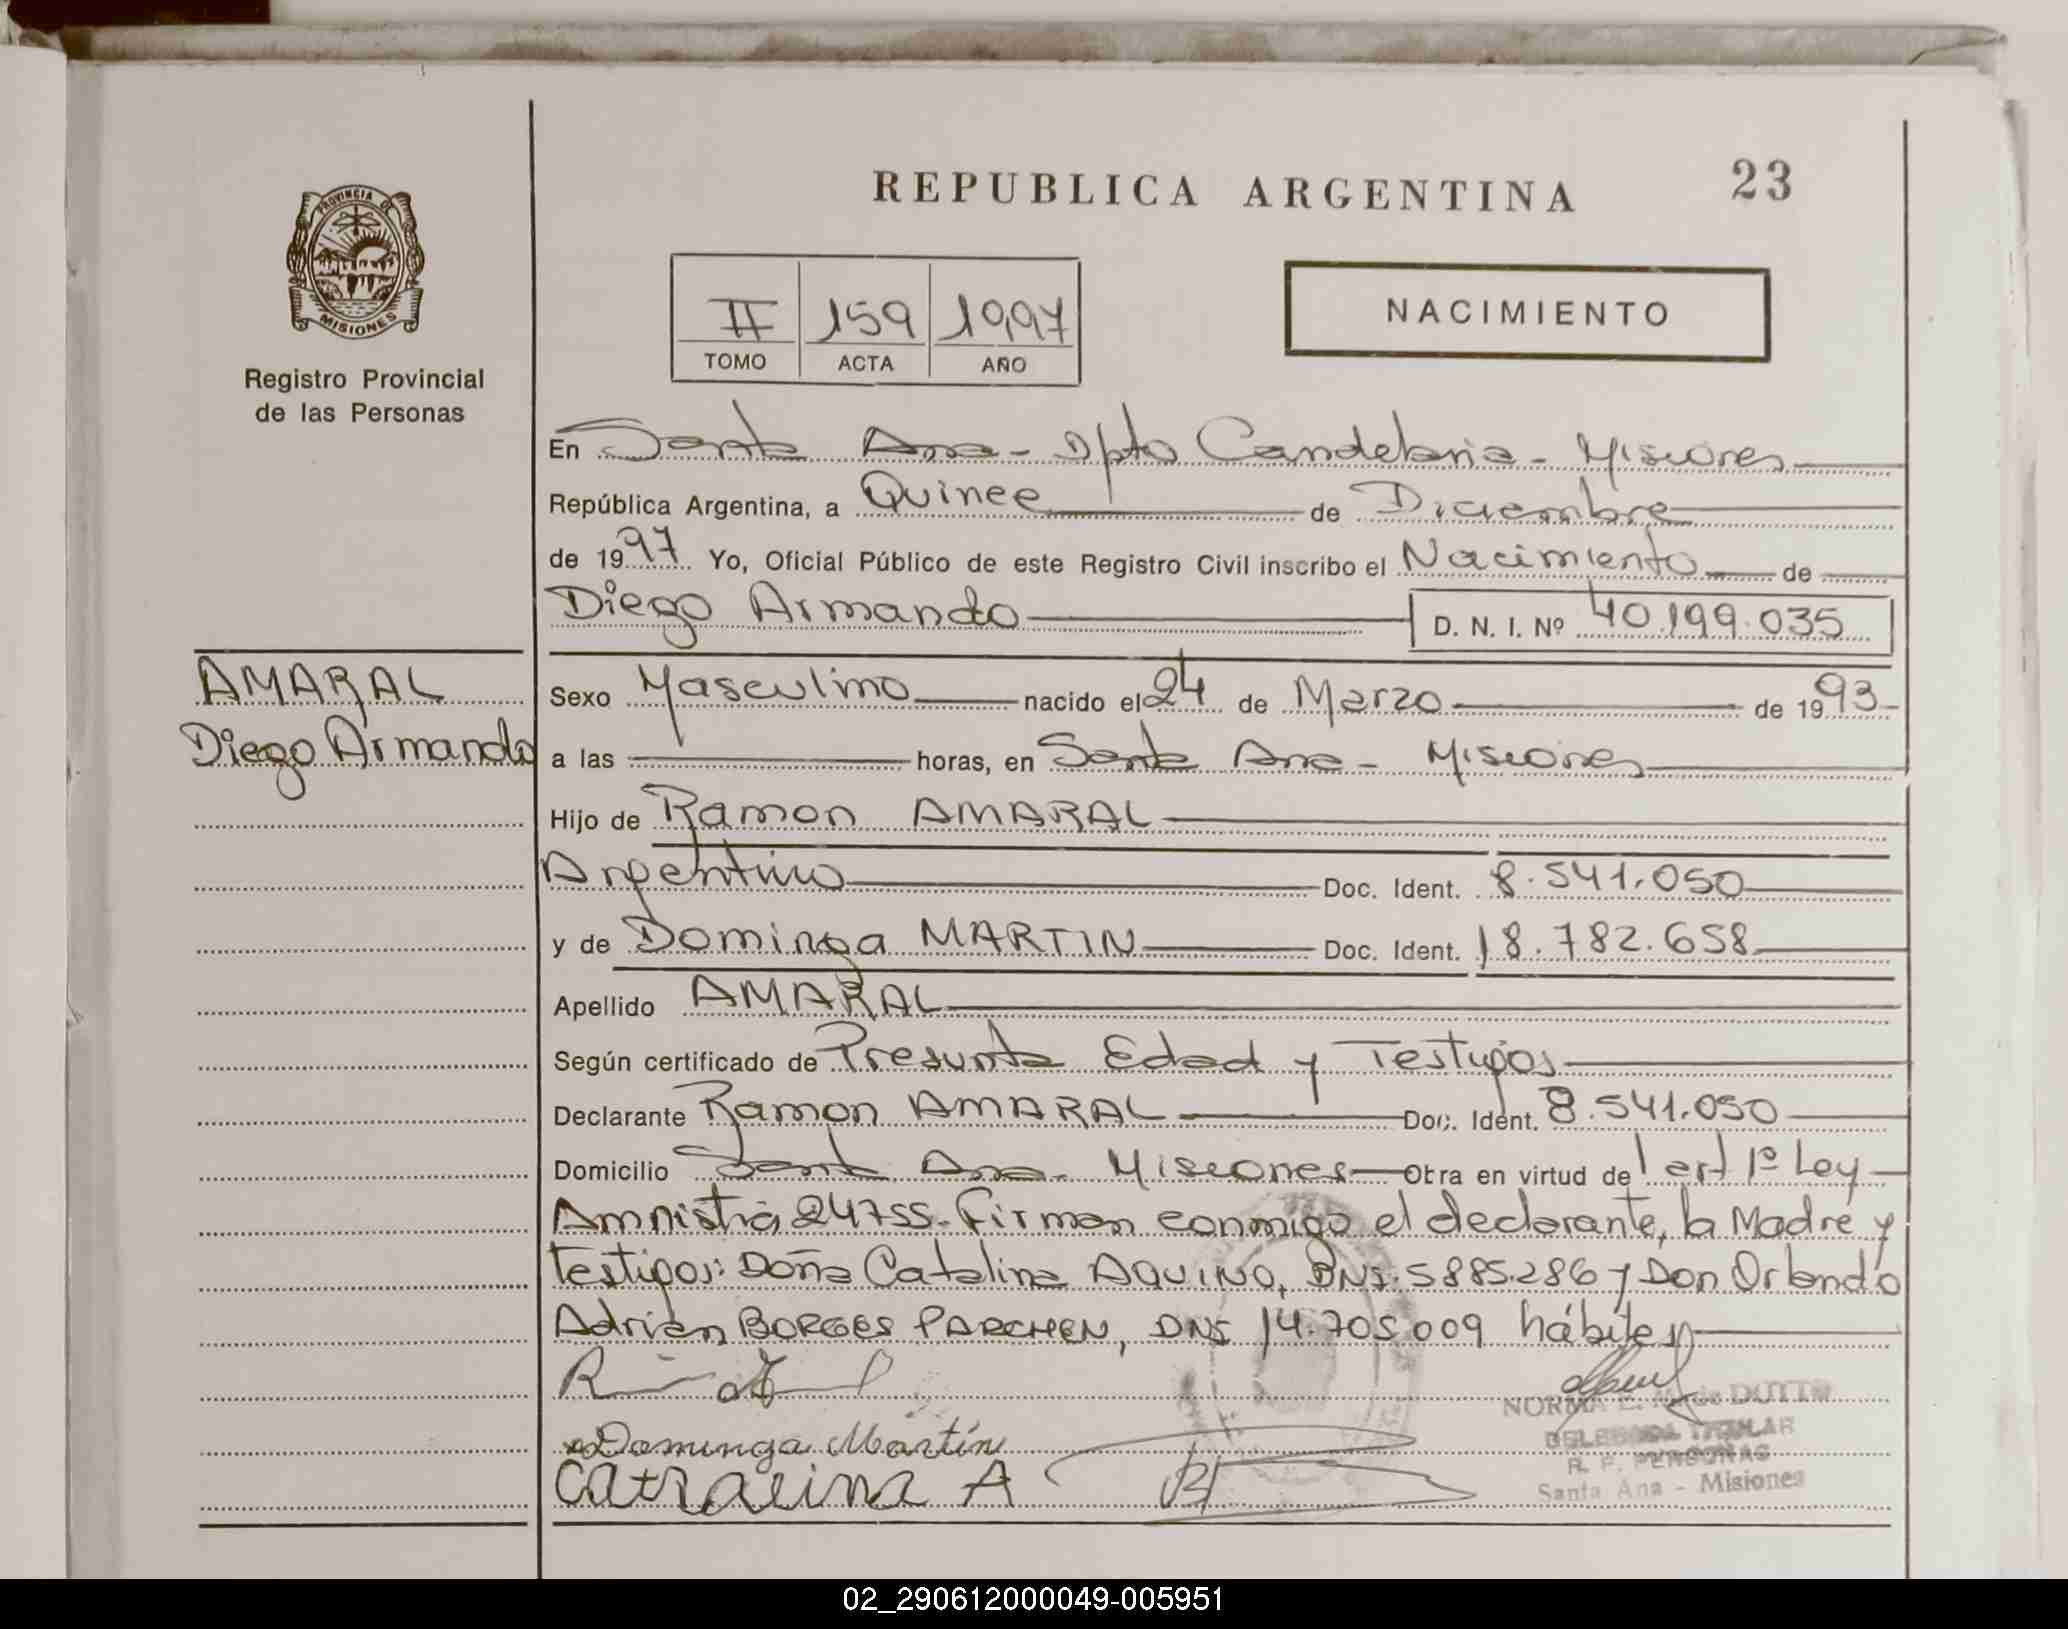 REPUBLICA ARGENTINA
23
PROVINCIA DE
MISIONES
Registro Provincial
de las Personas
II 159 1997
TOMO ACTA AÑO
NACIMIENTO
En Santa Ana - Dpto Candelaria - Misiones
República Argentina, a Quince de Diciembre
de 1997 Yo, Oficial Público de este Registro Civil inscribo el Nacimiento de
Diego Armando D. N. I. Nº 40.199.035
AMARAL
Diego Armando
Sexo Masculino nacido el 24 de Marzo de 1993
a las horas, en Santa Ana - Misiones
Hijo de Ramon AMARAL
Argentino Doc. Ident. 8.541.050
y de Dominga MARTIN Doc. Ident. 18.782.658
Apellido AMARAL
Según certificado de Presunta Edad y Testigos
Declarante Ramon AMARAL Doc. Ident. 8.541.050
Domicilio Santa Ana - Misiones Obra en virtud de art 1º Ley
Amnistia 24755. Firman conmigo el declarante, la Madre y
testigos: Doña Catalina AQUINO, DNI. 5885.286 y Don Orlando
Adrian BORGES PARCHEN, DNI 14.705.009 hábiles
Dominga Martín
Catralina A
NORMA E. DUTTO
DELEGADA TITULAR
R. P. PERSONAS
Santa Ana - Misiones
02_290612000049-005951